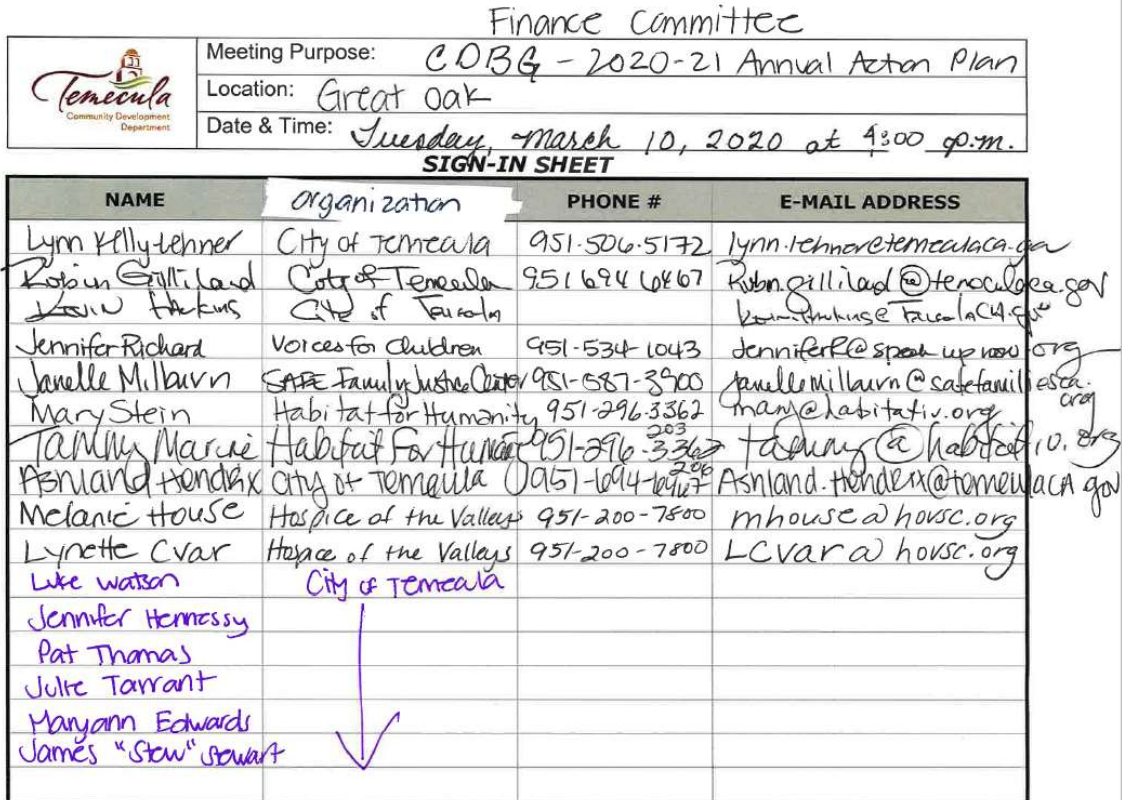 Finance Committee
Temecula
Community Development
Department
Meeting Purpose: CDBG - 2020-21 Annual Action Plan
Location: Great Oak
Date & Time: Tuesday, March 10, 2020 at 4:00 p.m.
SIGN-IN SHEET
NAME organization PHONE # E-MAIL ADDRESS
Lynn Kelly-Lehner City of Temecula 951-506-5172 lynn.lehner@temeculaca.gov
Robin Gilliland City of Temecula 951 694 6467 Robin.gilliland@temeculaca.gov
Kevin Hawkins City of Temecula
Jennifer Richard Voices for Children 951-534-1043 JenniferR@speakupnow.org
Janelle Milburn SAFE Family Justice Center 951-587-3900 janellemilburn@safefamiliesca.org
Mary Stein Habitat for Humanity 951-296-3362 mary@habitativ.org
Tammy Marine Habitat For Humanity 951-296-3362 203 tammy@habitativ.org
Ashland Hendrix City of Temecula 206 Ashland.Hendrix@temeculaCA.gov
Melanie House Hospice of the Valleys 951-200-7800 mhouse@hovsc.org
Lynette Cvar Hospice of the Valleys 951-200-7800 LCvar@hovsc.org
Luke Watson City of Temecula
Jennifer Hennessy
Pat Thomas
Julie Tarrant
Maryann Edwards
James "Stew" Stewart